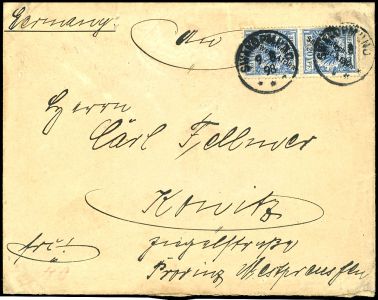 Germany.
An
Herrn
Carl Fellmer
Konitz
Ziegelstraße
Provinz Westpreußen
frei!